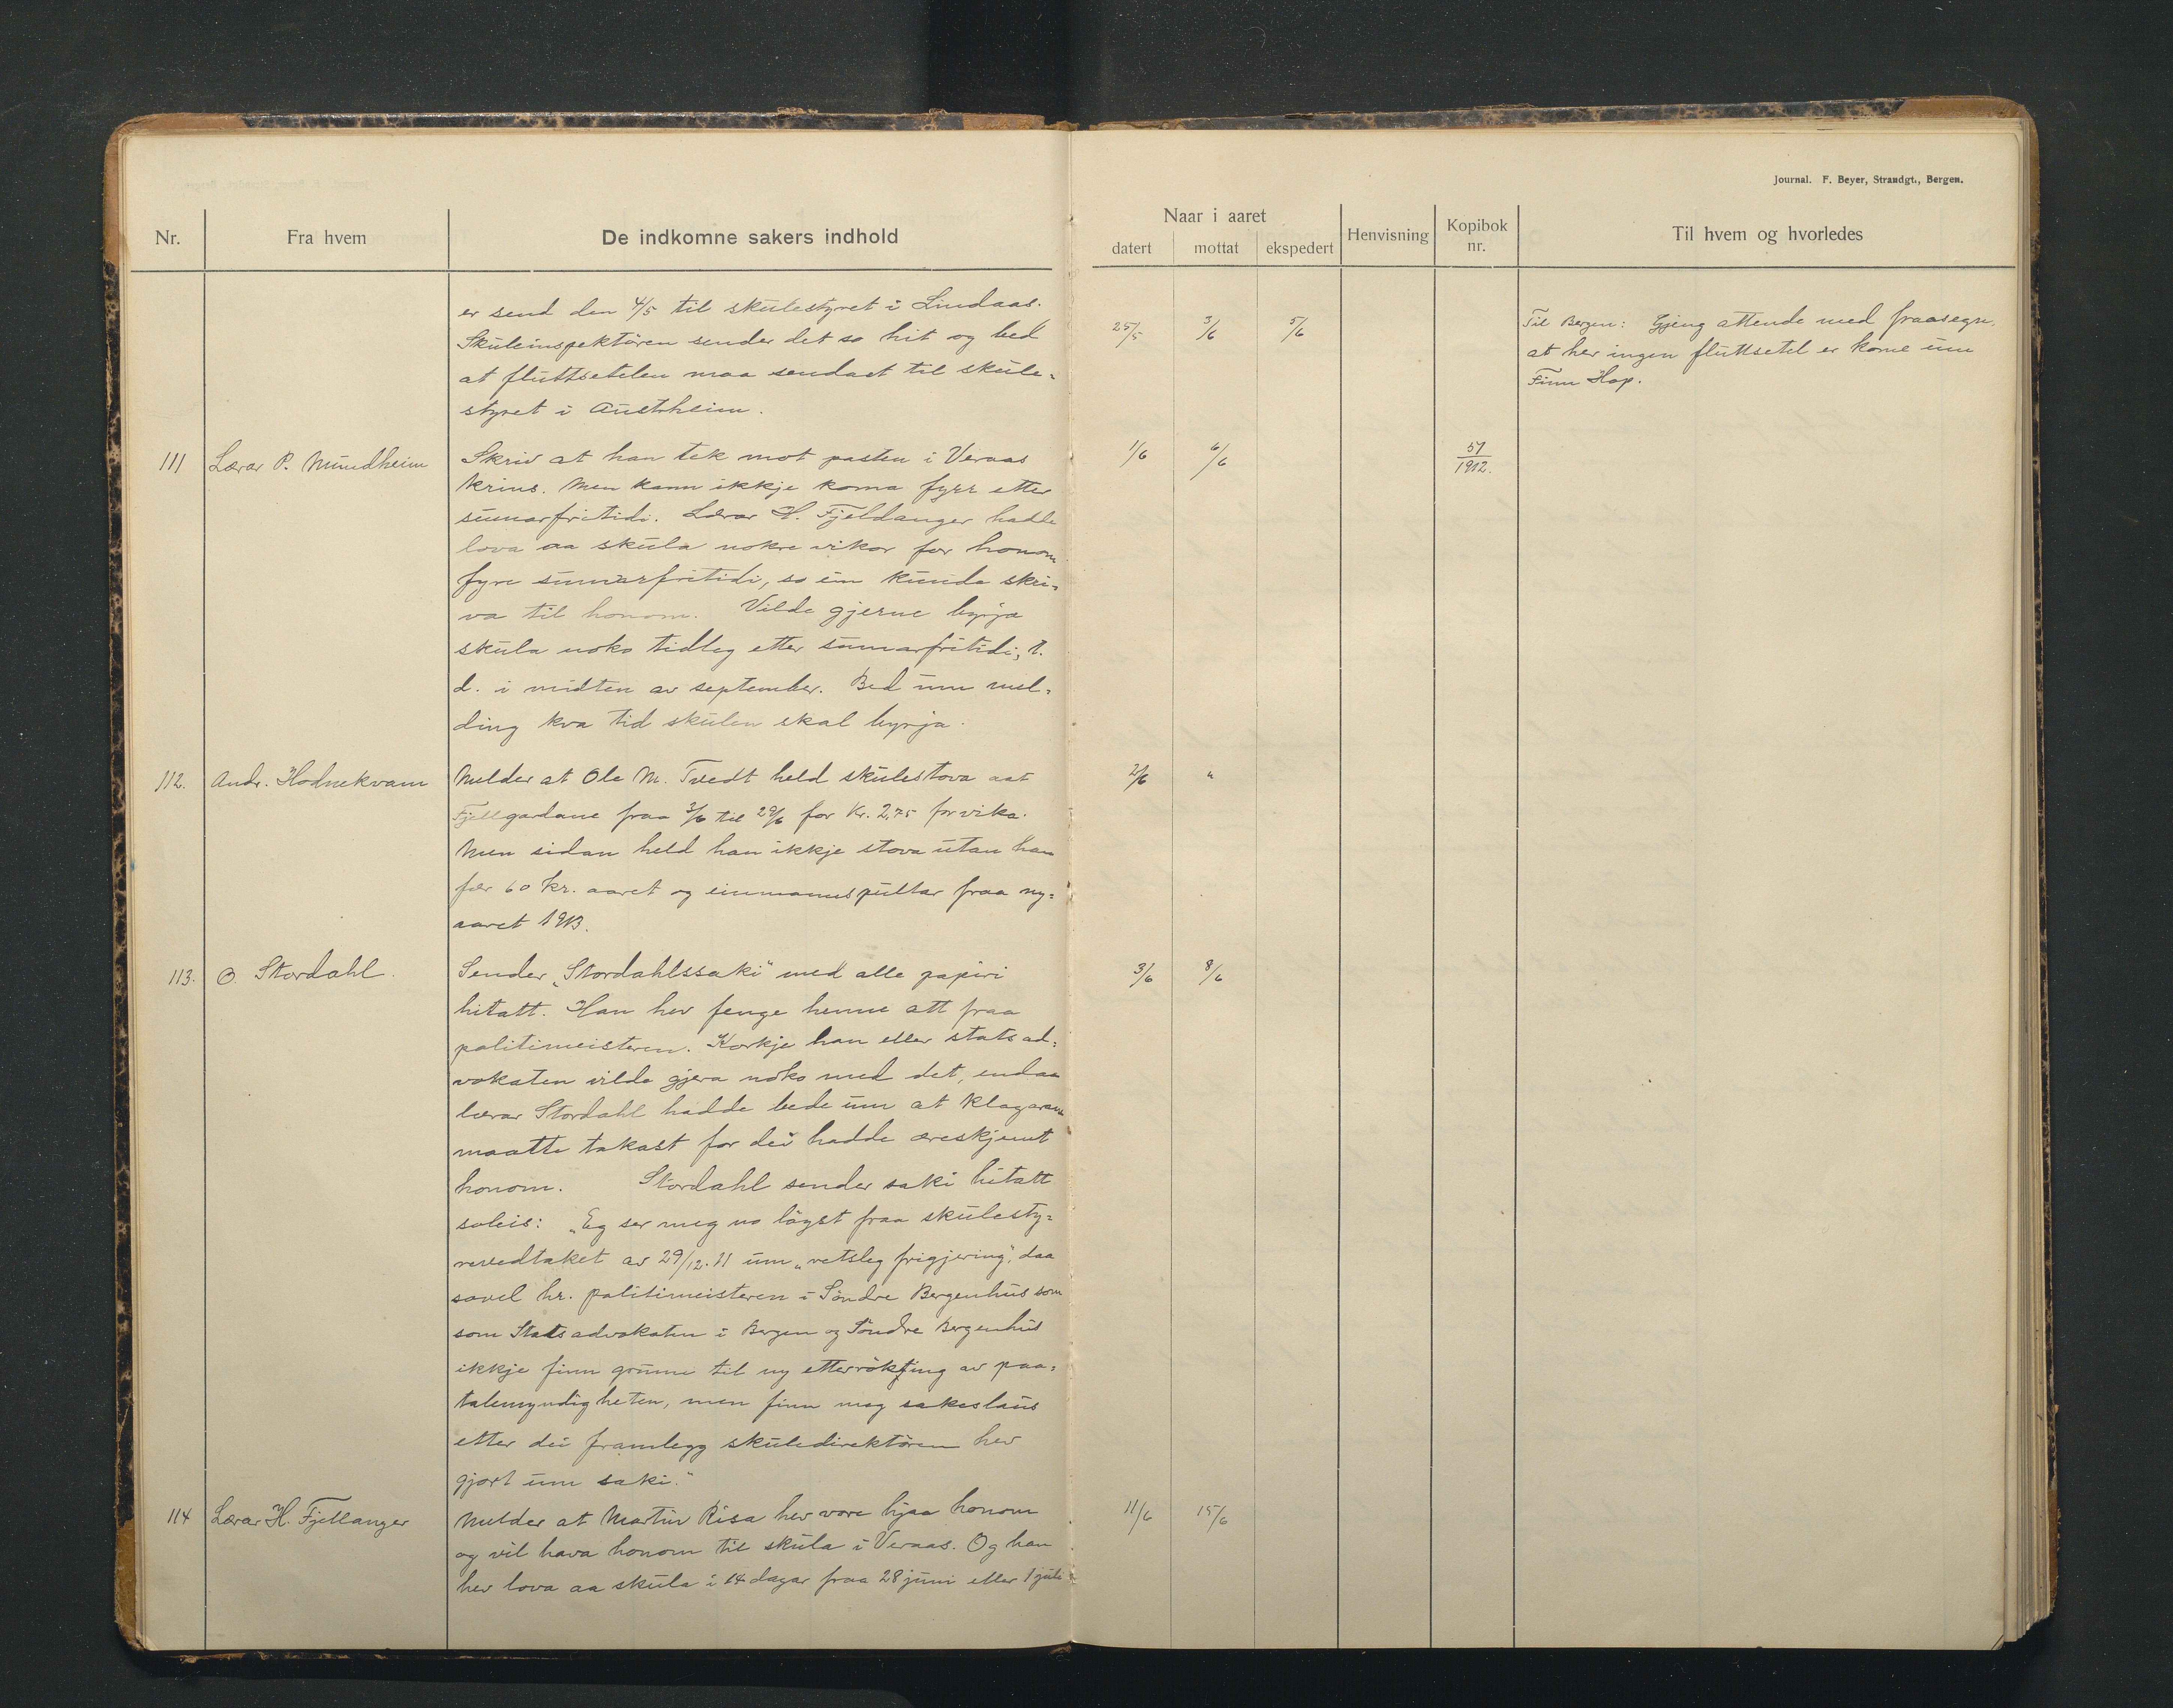 Journal. F. Beyer, Strandgt., Bergen.
Nr.
Fra hvem
De indkomne sakers indhold
Naar i aaret
datert
mottat
ekspedert
Henvisning
Kopibok
nr.
Til hvem og hvorledes
er send den 4/5 til skulestyret i Lindaas.
Skuleinspektören sender det so hit og bed
at fluttsetelen maa sendast til skule=
styret i Austrheim.
25/5
3/6
5/6
Til Bergen: Gjeng attende med fraasegn,
at her ingen fluttsetel er kome um
Finn Hop.
111
Lærar P. Mundheim
Skriv at han tek mot posten i Veraas
krins. Men kann ikkje koma fyrr etter
sumarfritidi. Lærar H. Fjeldanger hadde
lova aa skula nokre vikor for honom
fyre sumarfritidi, so um kunde skri=
va til honom. Vilde gjerne byrja
skula noko tidleg etter sumarfritidi, t.
d. i midten av september. Bed um mel=
ding kva tid skulen skal byrja.
1/6
6/6
57
1912.
112.
Andr. Hodnekvam
Melder at Ole M. Tvedt held skulestova aat
Fjellgardane fraa 3/6 til 29/6 for Kr. 2,75 for vika.
Men sidan held han ikkje stova utan han
fær 60 kr. aaret og einmannspultar fraa ny=
aaret 1913.
2/6
"
113.
O. Stordahl.
Sender „Stordahlssaki" med alle papiri
hitatt. Han hev fenge henne att fraa
politimeisteren. Korkje han eller statsad=
vokaten vilde gjera noko med det, endaa
lærar Stordahl hadde bede um at klagarane
maatte takast for dei hadde æreskjemt
honom. Stordahl sender saki hitatt
soleis: „Eg ser meg no löyst fraa skulesty=
revedtaket av 29/12.11 um „retsleg frigjering", daa
sovel hr. politimeisteren i Söndre Bergenhus som
som Statsadvokaten i Bergen og Söndre Bergenhus
ikkje finn grunn til ny etterröking av paa=
talemyndigheten, men finn meg sakeslaus
etter dei framlegg skuledirektören hev
gjort um saki."
3/6
8/6
114
Lærar H. Fjellanger
Melder at Martin Risa hev vore hjaa honom
og vil hava honom til skula i Veraas. Og han
hev lova aa skula i 14 dagar fraa 28 juni eller 1 juli
11/6
15/6